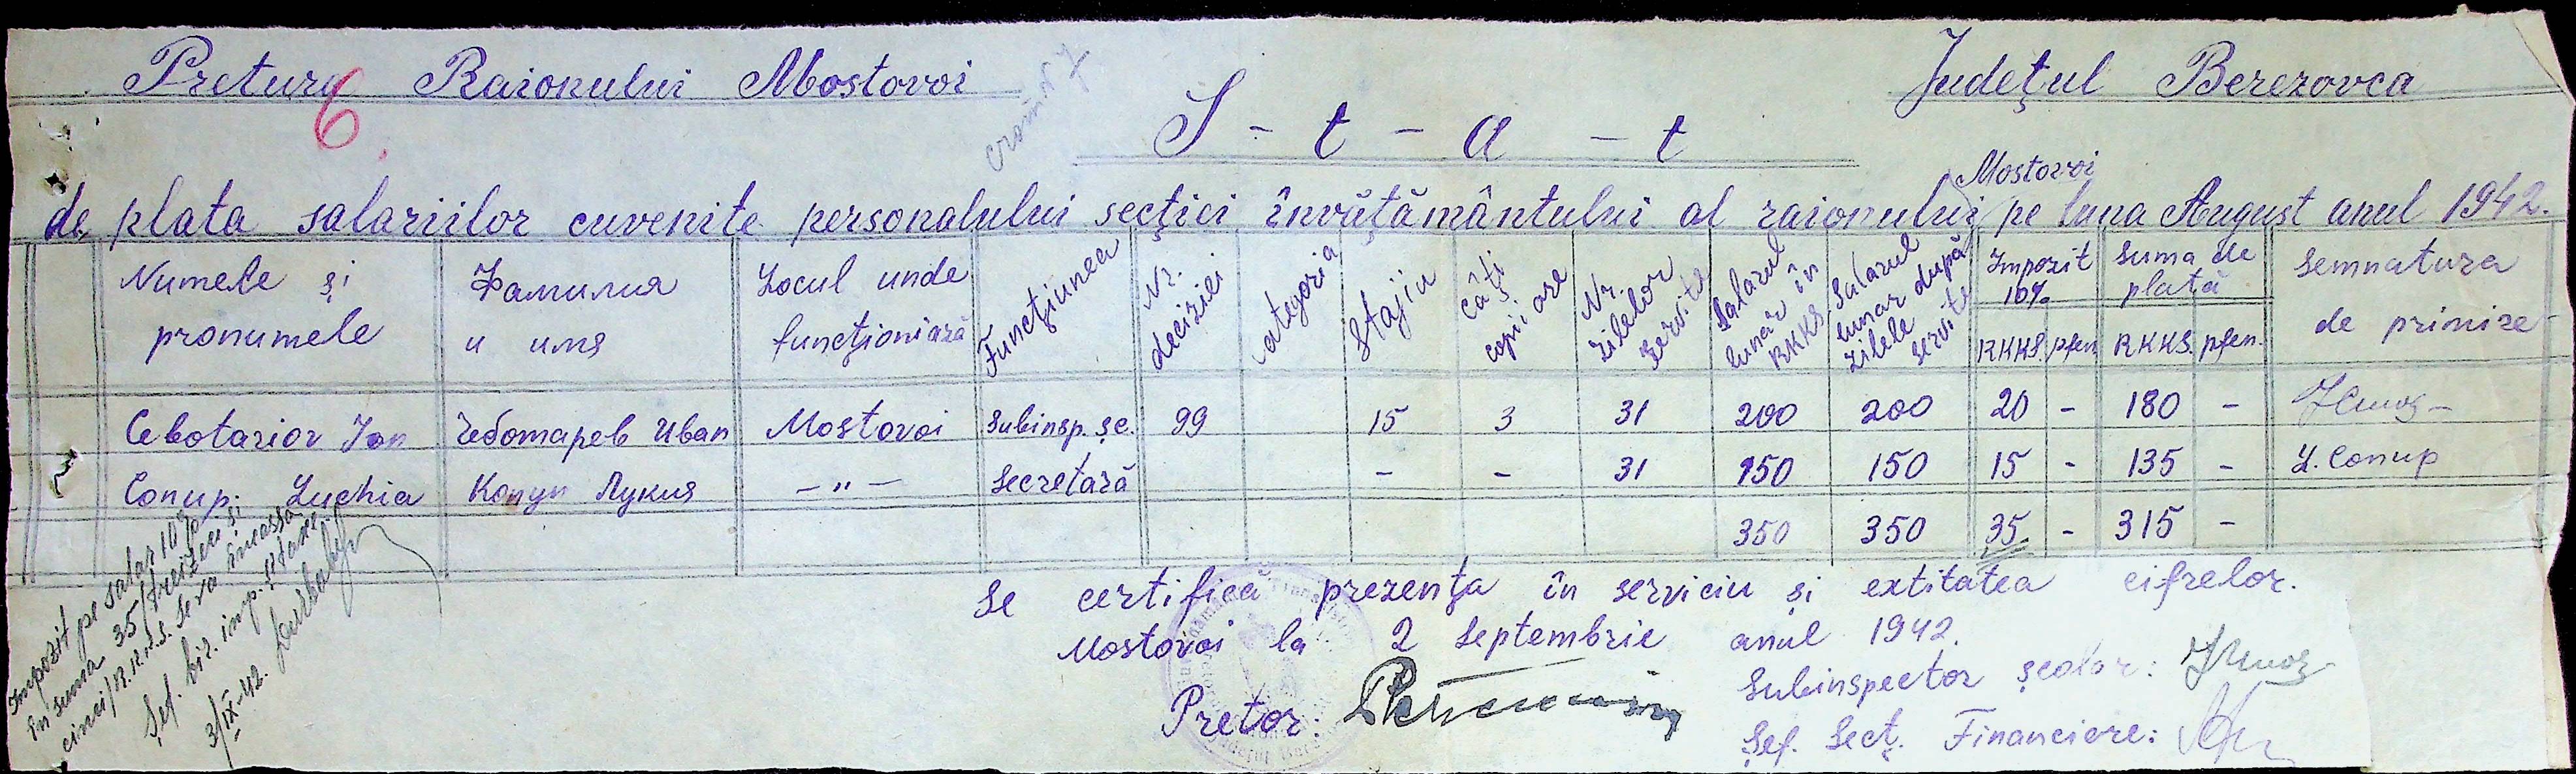 Pretura Raionului Mostovoi
Judeţul Berezovca
6
S - t - a - t
Mostovoi
de plata salariilor cuvenite personalului secţiei învăţământului al raionului pe luna August anul 1942.
Numele şi pronumele | Фамилия и имя | Locul unde funcţioniază | Funcţiunea | Nr. deciziei | categoria | Stajiu | câţi copii are | Nr. zilelor servite | Salarul lunar în RKKS | Salarul lunar după zilele servite | Impozit 10% | suma de plată | semnatura de primire
RKKS. pfen. | RKKS. pfen.
Cebotariov Ion | Чеботарев Иван | Mostovoi | Subinsp. şc. | 99 | 15 | 3 | 31 | 200 | 200 | 20 - | 180 -
Conup. Luchia | Конуп Лукия | - " - | Secretară | - | - | 31 | 150 | 150 | 15 - | 135 - | L. Conup
350 | 350 | 35. - | 315 -
Impozit pe salar 10%
în suma 35/treizeci şi
cinci/R.K.K.S. se va încassa
Şef. bir. imp. şi taxe
3/IX-42.
Se certifică prezenţa în serviciu şi extitatea cifrelor.
Mostovoi la 2 Septembrie anul 1942.
Pretor:
Subinspector şcolar:
Şef. Secţ. Financiere: